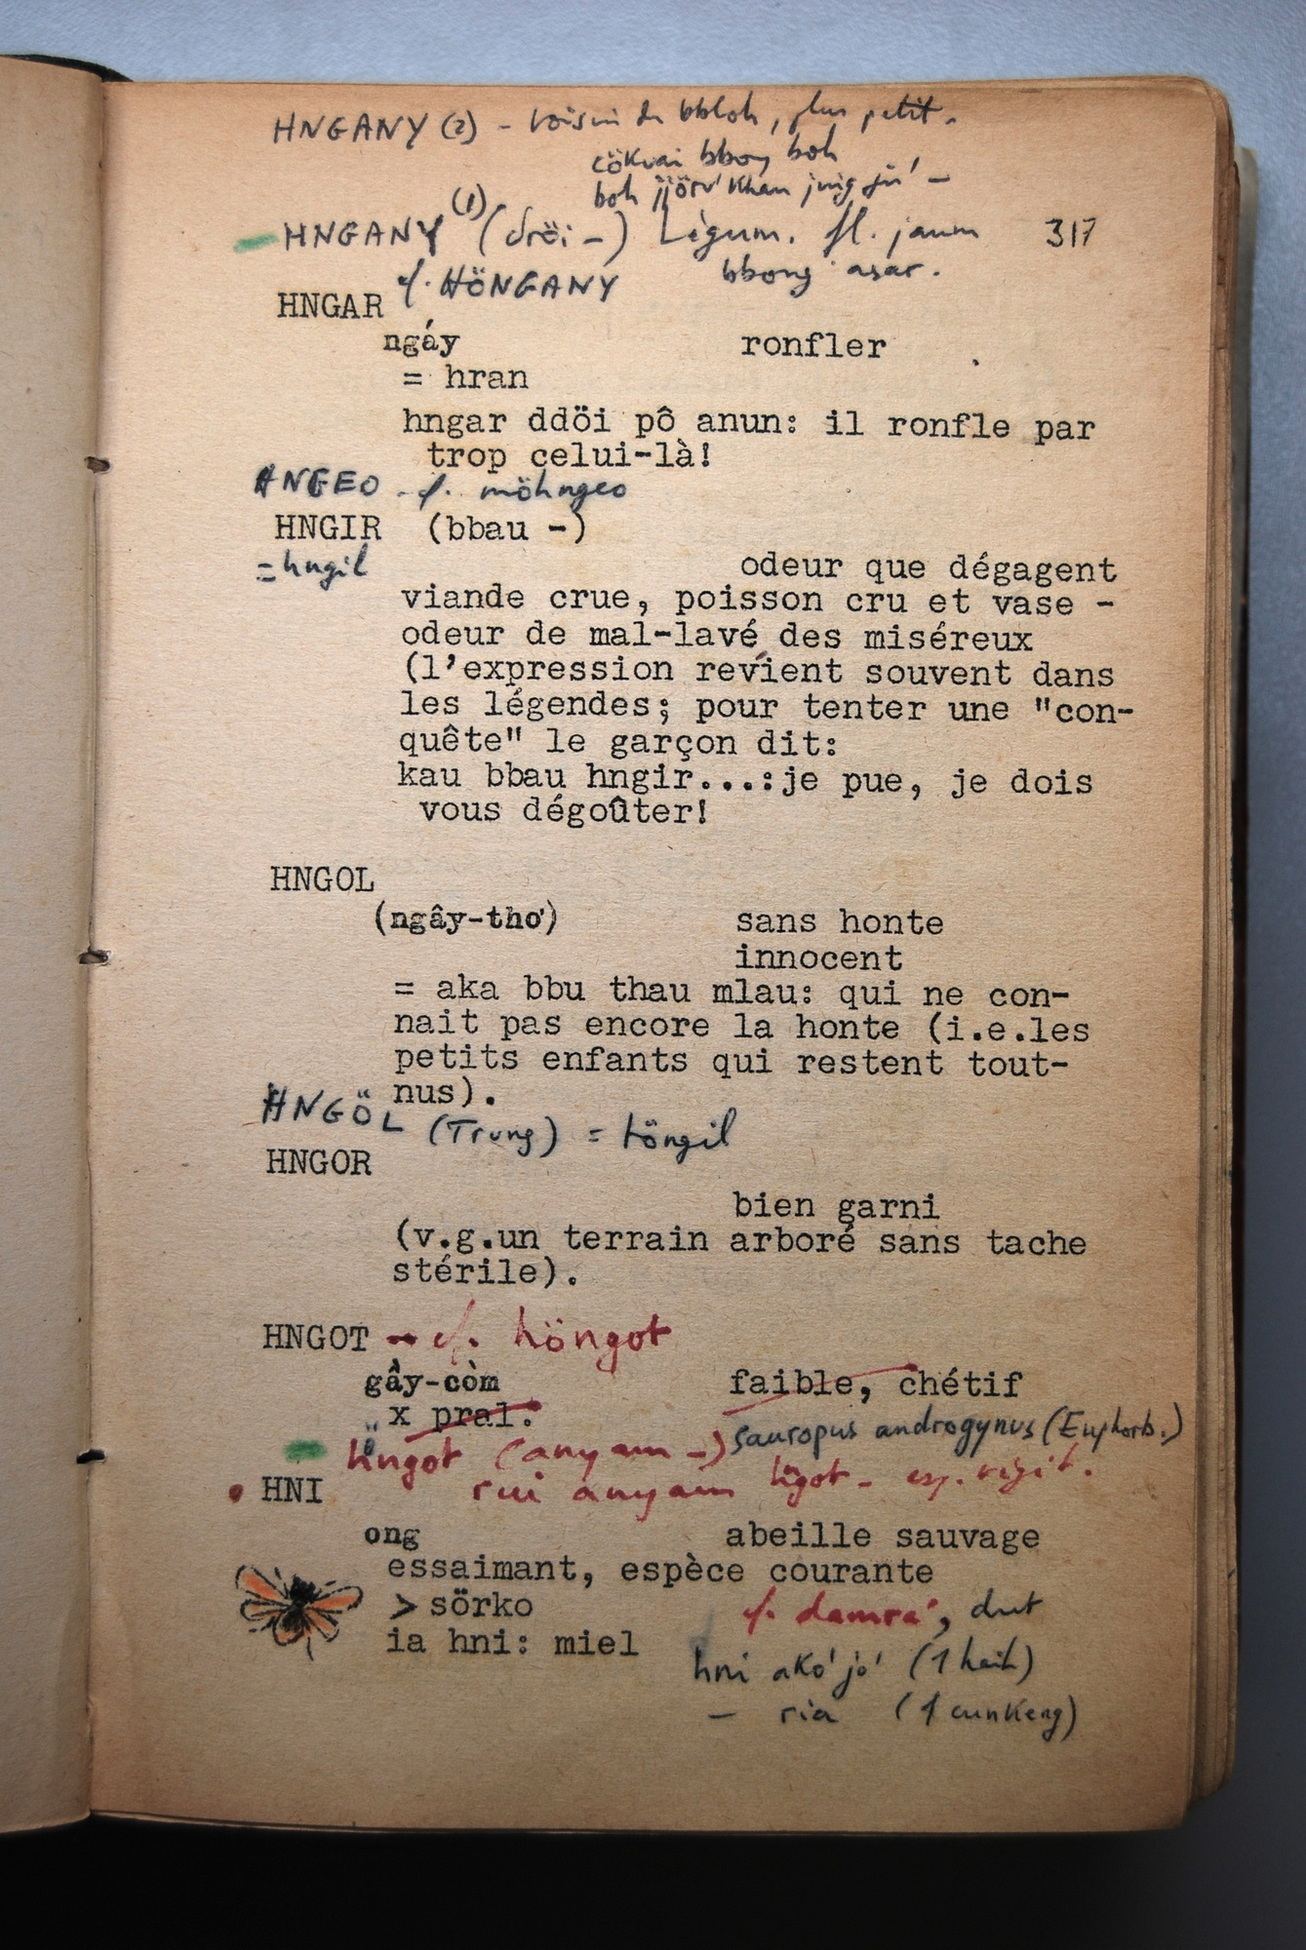 HNGANY (2) - voisin du bbloh, plus petit.
cökvai bbong boh
boh jjörv' khan jŭig jŭ' -
HNGANY (1) (dröi -) Légum. fl. jaune 317
cf. HÖNGANY bbong asar.
HNGAR
ngáy ronfler
= hran
hngar ddöi pô anun: il ronfle par
trop celui-là!
HNGEO - cf. möhngeo
HNGIR (bbau -)
= hngil odeur que dégagent
viande crue, poisson cru et vase -
odeur de mal-lavé des miséreux
(l'expression revient souvent dans
les légendes; pour tenter une "con-
quête" le garçon dit:
kau bbau hngir...:je pue, je dois
vous dégoûter!
HNGOL
(ngây-thơ) sans honte
innocent
= aka bbu thau mlau: qui ne con-
nait pas encore la honte (i.e.les
petits enfants qui restent tout-
nus).
HNGÖL (Trung) = töngil
HNGOR
bien garni
(v.g.un terrain arboré sans tache
stérile).
HNGOT - cf. höngot
gầy-còm faible, chétif
x pral.
sauropus androgynus (Euphorb.)
Hngot (anyam -)
HNI rui anyam hgot - esp. végét.
ong abeille sauvage
essaimant, espèce courante
> sörko cf. damra', dut
ia hni: miel
hni akö' jö' (1 heih)
- ria (1 cunkeng)